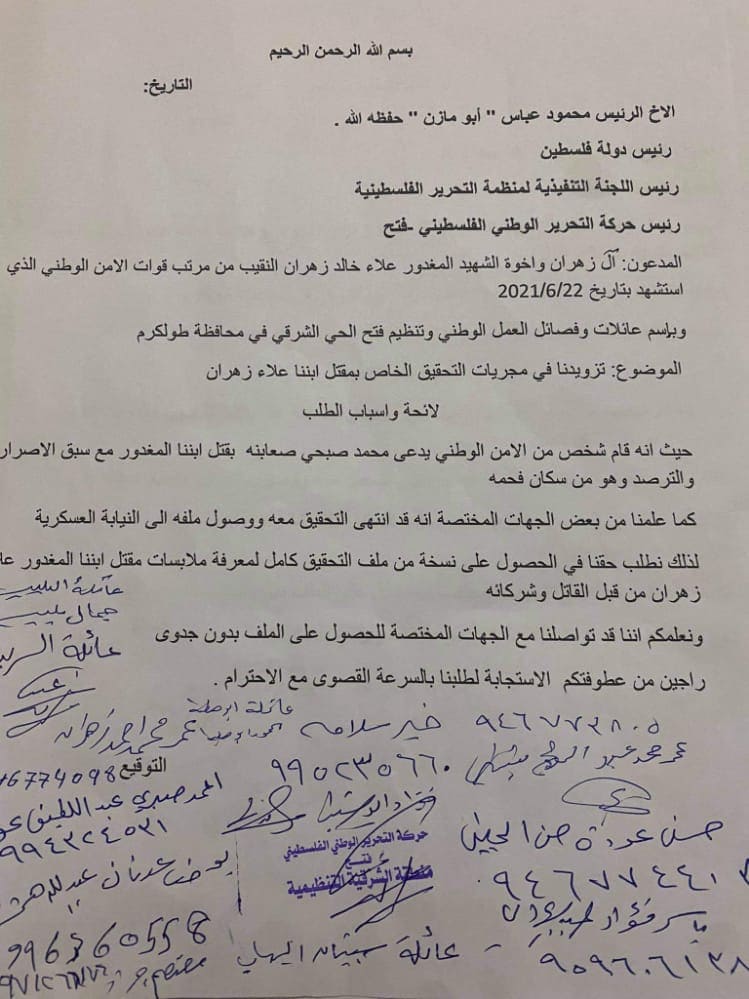 بسم الله الرحمن الرحيم
التاريخ:
الاخ الرئيس محمود عباس " أبو مازن " حفظه الله .
رئيس دولة فلسطين
رئيس اللجنة التنفيذية لمنظمة التحرير الفلسطينية
رئيس حركة التحرير الوطني الفلسطيني -فتح
المدعون: آل زهران واخوة الشهيد المغدور علاء خالد زهران النقيب من مرتب قوات الامن الوطني الذي
استشهد بتاريخ 2021/6/22
وبإسم عائلات وفصائل العمل الوطني وتنظيم فتح الحي الشرقي في محافظة طولكرم
الموضوع: تزويدنا في مجريات التحقيق الخاص بمقتل ابننا علاء زهران
لائحة واسباب الطلب
حيث انه قام شخص من الامن الوطني يدعى محمد صبحي صعابنه بقتل ابننا المغدور مع سبق الاصرار
والترصد وهو من سكان فحمه
كما علمنا من بعض الجهات المختصة انه قد انتهى التحقيق معه ووصول ملفه الى النيابة العسكرية
لذلك نطلب حقنا في الحصول على نسخة من ملف التحقيق كامل لمعرفة ملابسات مقتل ابننا المغدور
زهران من قبل القاتل وشركائه
ونعلمكم اننا قد تواصلنا مع الجهات المختصة للحصول على الملف بدون جدوى
راجين من عطوفتكم الاستجابة لطلبنا بالسرعة القصوى مع الاحترام .
عائلة
جمال
عائلة
عائلة
خير سلامه ٩٤٦٧٧٣٨٠٥
عمر محمد احمد زهران
عمر محمد عبد
٩٩٥٢٣٥٦٦٠
التوقيع
6774098
صبري عبد اللطيف
٩٩٤٣٢٤٥٣١
حركة التحرير الوطني الفلسطيني
فتح
منطقة الشرقية التنظيمية
حسن عودة حسن
٩٤٦٧٧٤٤١٣
عدنان عبدالله
ياسر فؤاد
996360558
معتصم
عائلة
٩٥٩٦٠٦١٣٨